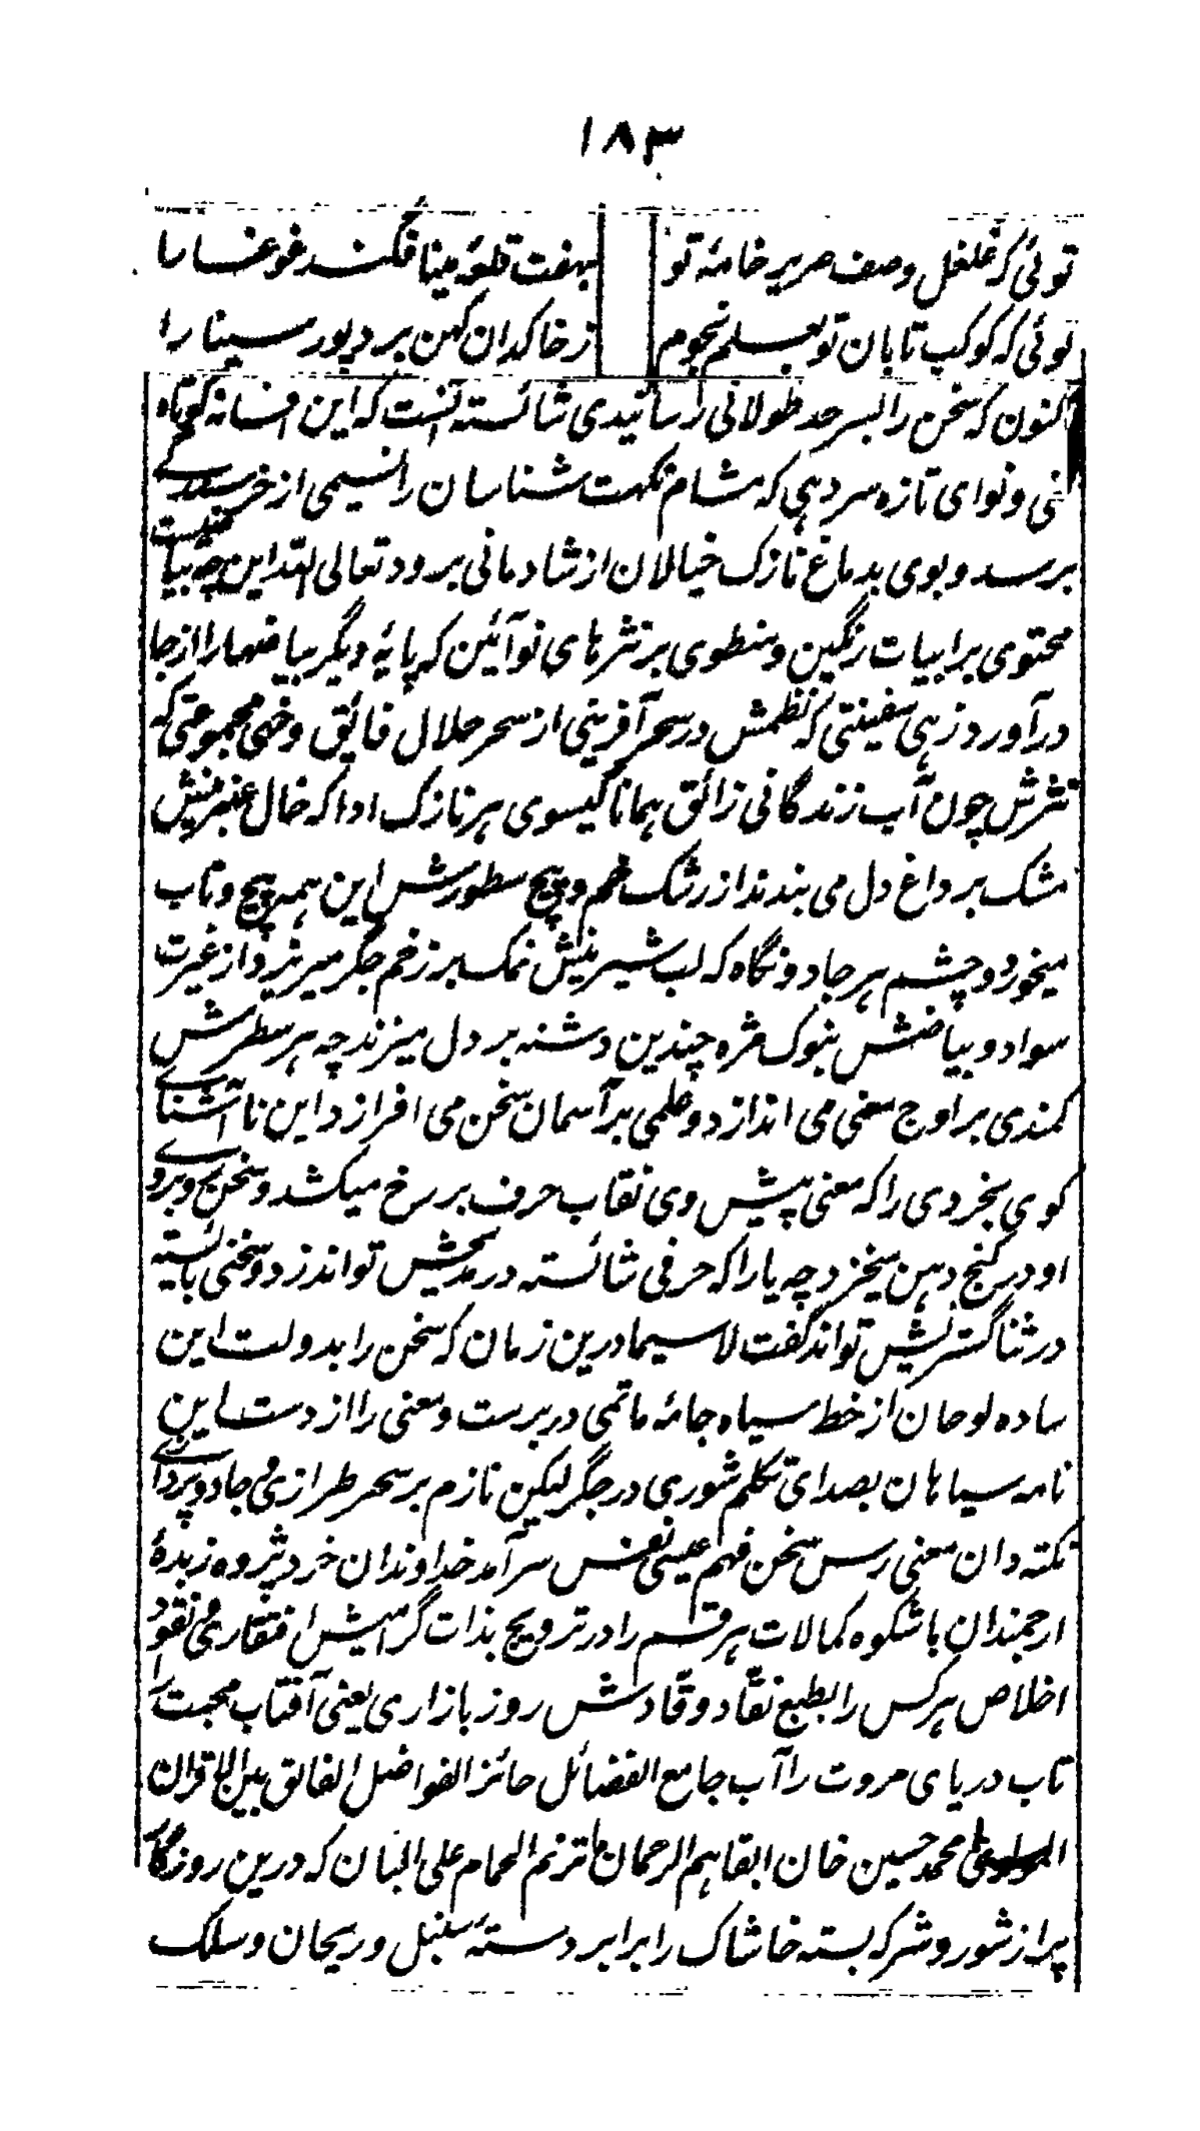 ۱۸۳
توئی که غلغل وصف صریر خامهٔ تو بهفت قلعهٔ مینا فگند غوغا را
توئی که کوکب تابان تو بعلم نجوم ز خاکدان کهن برد پور سینا را
اکنون که سخن را بسرحد طولانی رسانیدی شائسته آنست که این فسانه کوتاه
کنی و نوای تازه سر دهی که مشام نکهت شناسان را نسیمی از خرسندی
برسد و بوی بدماغ نازک خیالان از شادمانی برود تعالی الله این چه بیاضیست
محتوی بر ابیات رنگین و منطوی بر نثرهای نوآئین که پایهٔ دیگر بیاضها را از جا
درآورد زهی سفینتی که نظمش در سحر آفرینی از سحر حلال فائق و خهی مجموعتی که
نثرش چون آب زندگانی رائق همانا گیسوی هر نازک ادا که خال عنبرینش
مشک بر داغ دل می بندد از رشک خم و پیچ سطورش این همه پیچ و تاب
میخورد و چشم هر جادو نگاه که لب شیرینش نمک بر زخم جگر میریزد از غیرت
سواد و بیاضش بنوک مژه چندین دشنه بر دل میزند چه هر سطرش
کمندی بر اوج معنی می اندازد و علمی بر آسمان سخن می افرازد این ناآشنای
کوی بخردی را که معنی پیش وی نقاب حرف بر رخ میکشد و سخن روبروی
او در کنج دهن میخزد چه یارا که حرفی شائسته در مدحش تواند زد و سخنی بائسته
در ثنا گستریش تواند گفت لاسیما درین زمان که سخن را بدولت این
ساده لوحان از خط سیاه جامهٔ ماتمی در برست و معنی را از دست این
نامه سیاهان بصدای تکلم شوری در جگر لیکن نازم بر سحر طرازی و جادو پردازی
نکته دان معنی رس سخن فهم عیسی نفس سرآمد خداوندان خرد پژوه زبدهٔ
ارجمندان باشکوه کمالات هر قسم را در ترویج بذات گرامیش افتقاری و نقود
اخلاص هر کس را بطبع نقاد وقادش روز بازاری یعنی آفتاب محبت را
تاب دریای مروت را آب جامع الفضائل حائز الفواضل الفائق بین الاقران
المولوی محمد حسین خان ابقاهم الرحمان ما ترنم الحمام علی البان که درین روزگار
پر از شور و شر که بسته خاشاک را برابر دستهٔ سنبل و ریحان و سلک